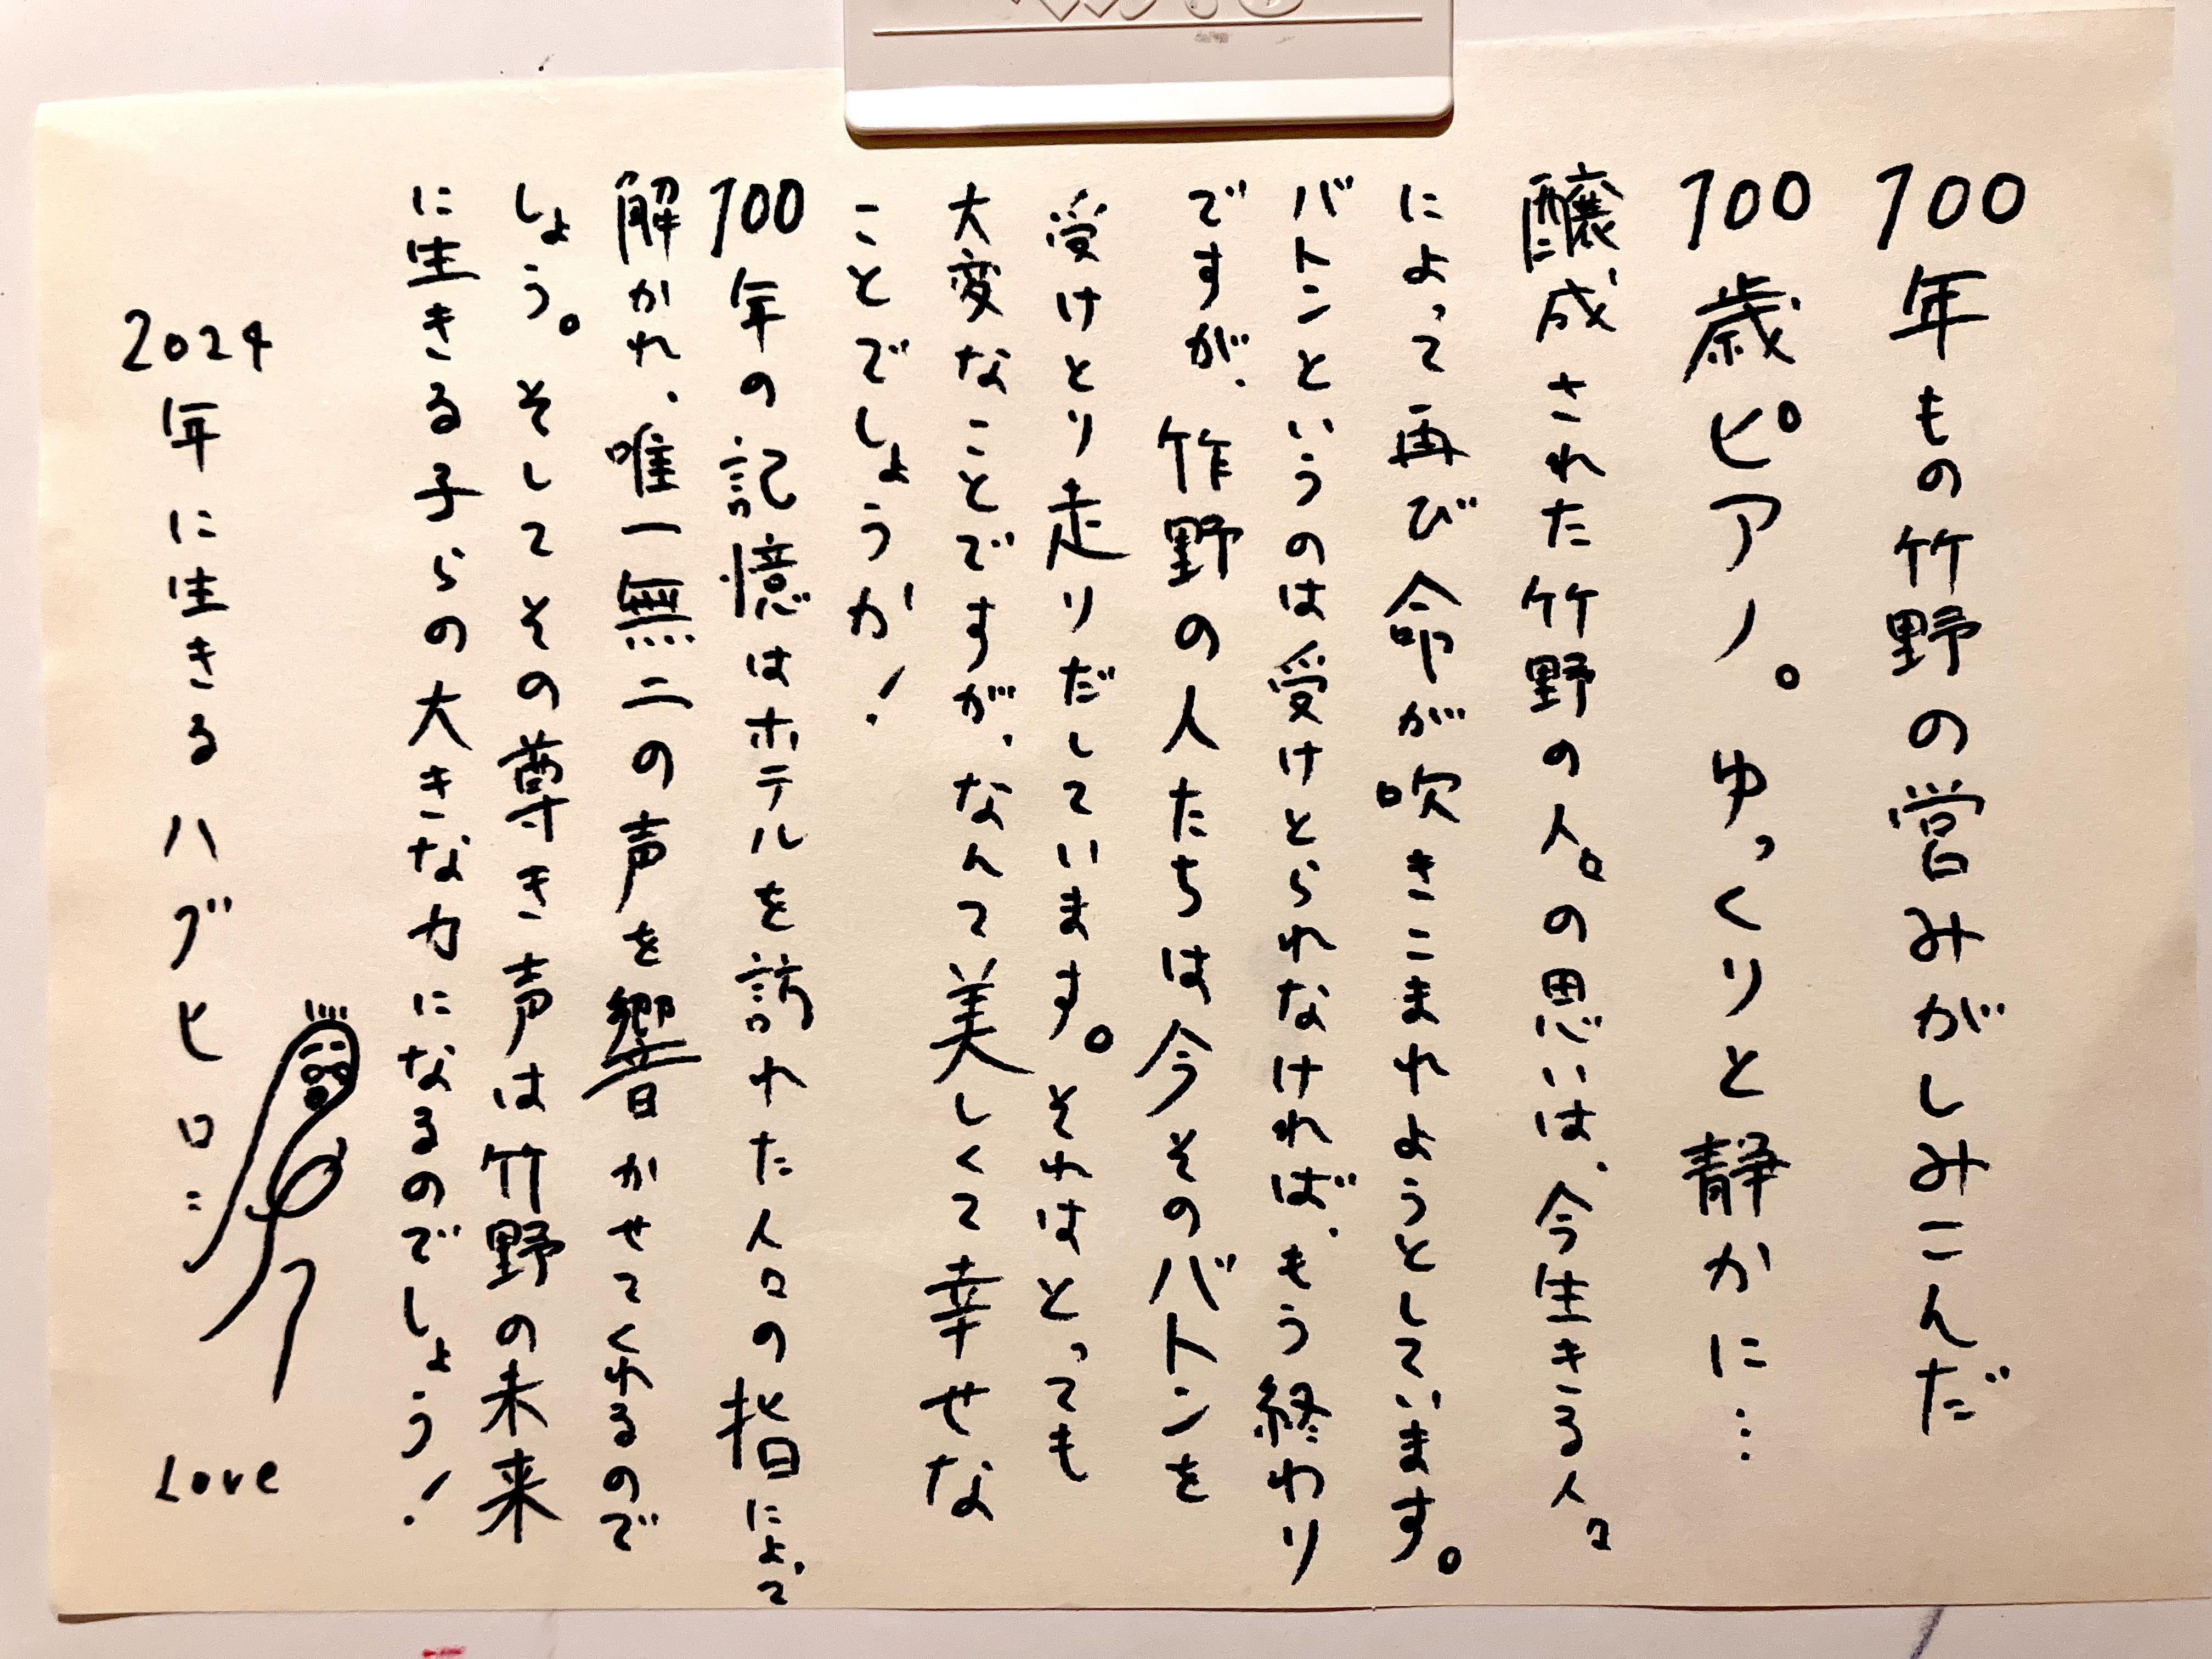 100年もの竹野の営みがしみこんだ
100歳ピアノ。ゆっくりと静かに…
醸成された竹野の人々の思いは、今生きる人々
によって再び命が吹きこまれようとしています。
バトンというのは受けとられなければ、もう終わり
ですが、竹野の人たちは今そのバトンを
受けとり走りだしています。それはとっても
大変なことですが、なんて美しくて幸せな
ことでしょうか!
100年の記憶はホテルを訪れた人々の指によって
解かれ、唯一無二の声を響かせてくれるので
しょう。そしてその尊き声は竹野の未来
に生きる子らの大きな力になるのでしょう!
2024年に生きるハブヒロシ
Love